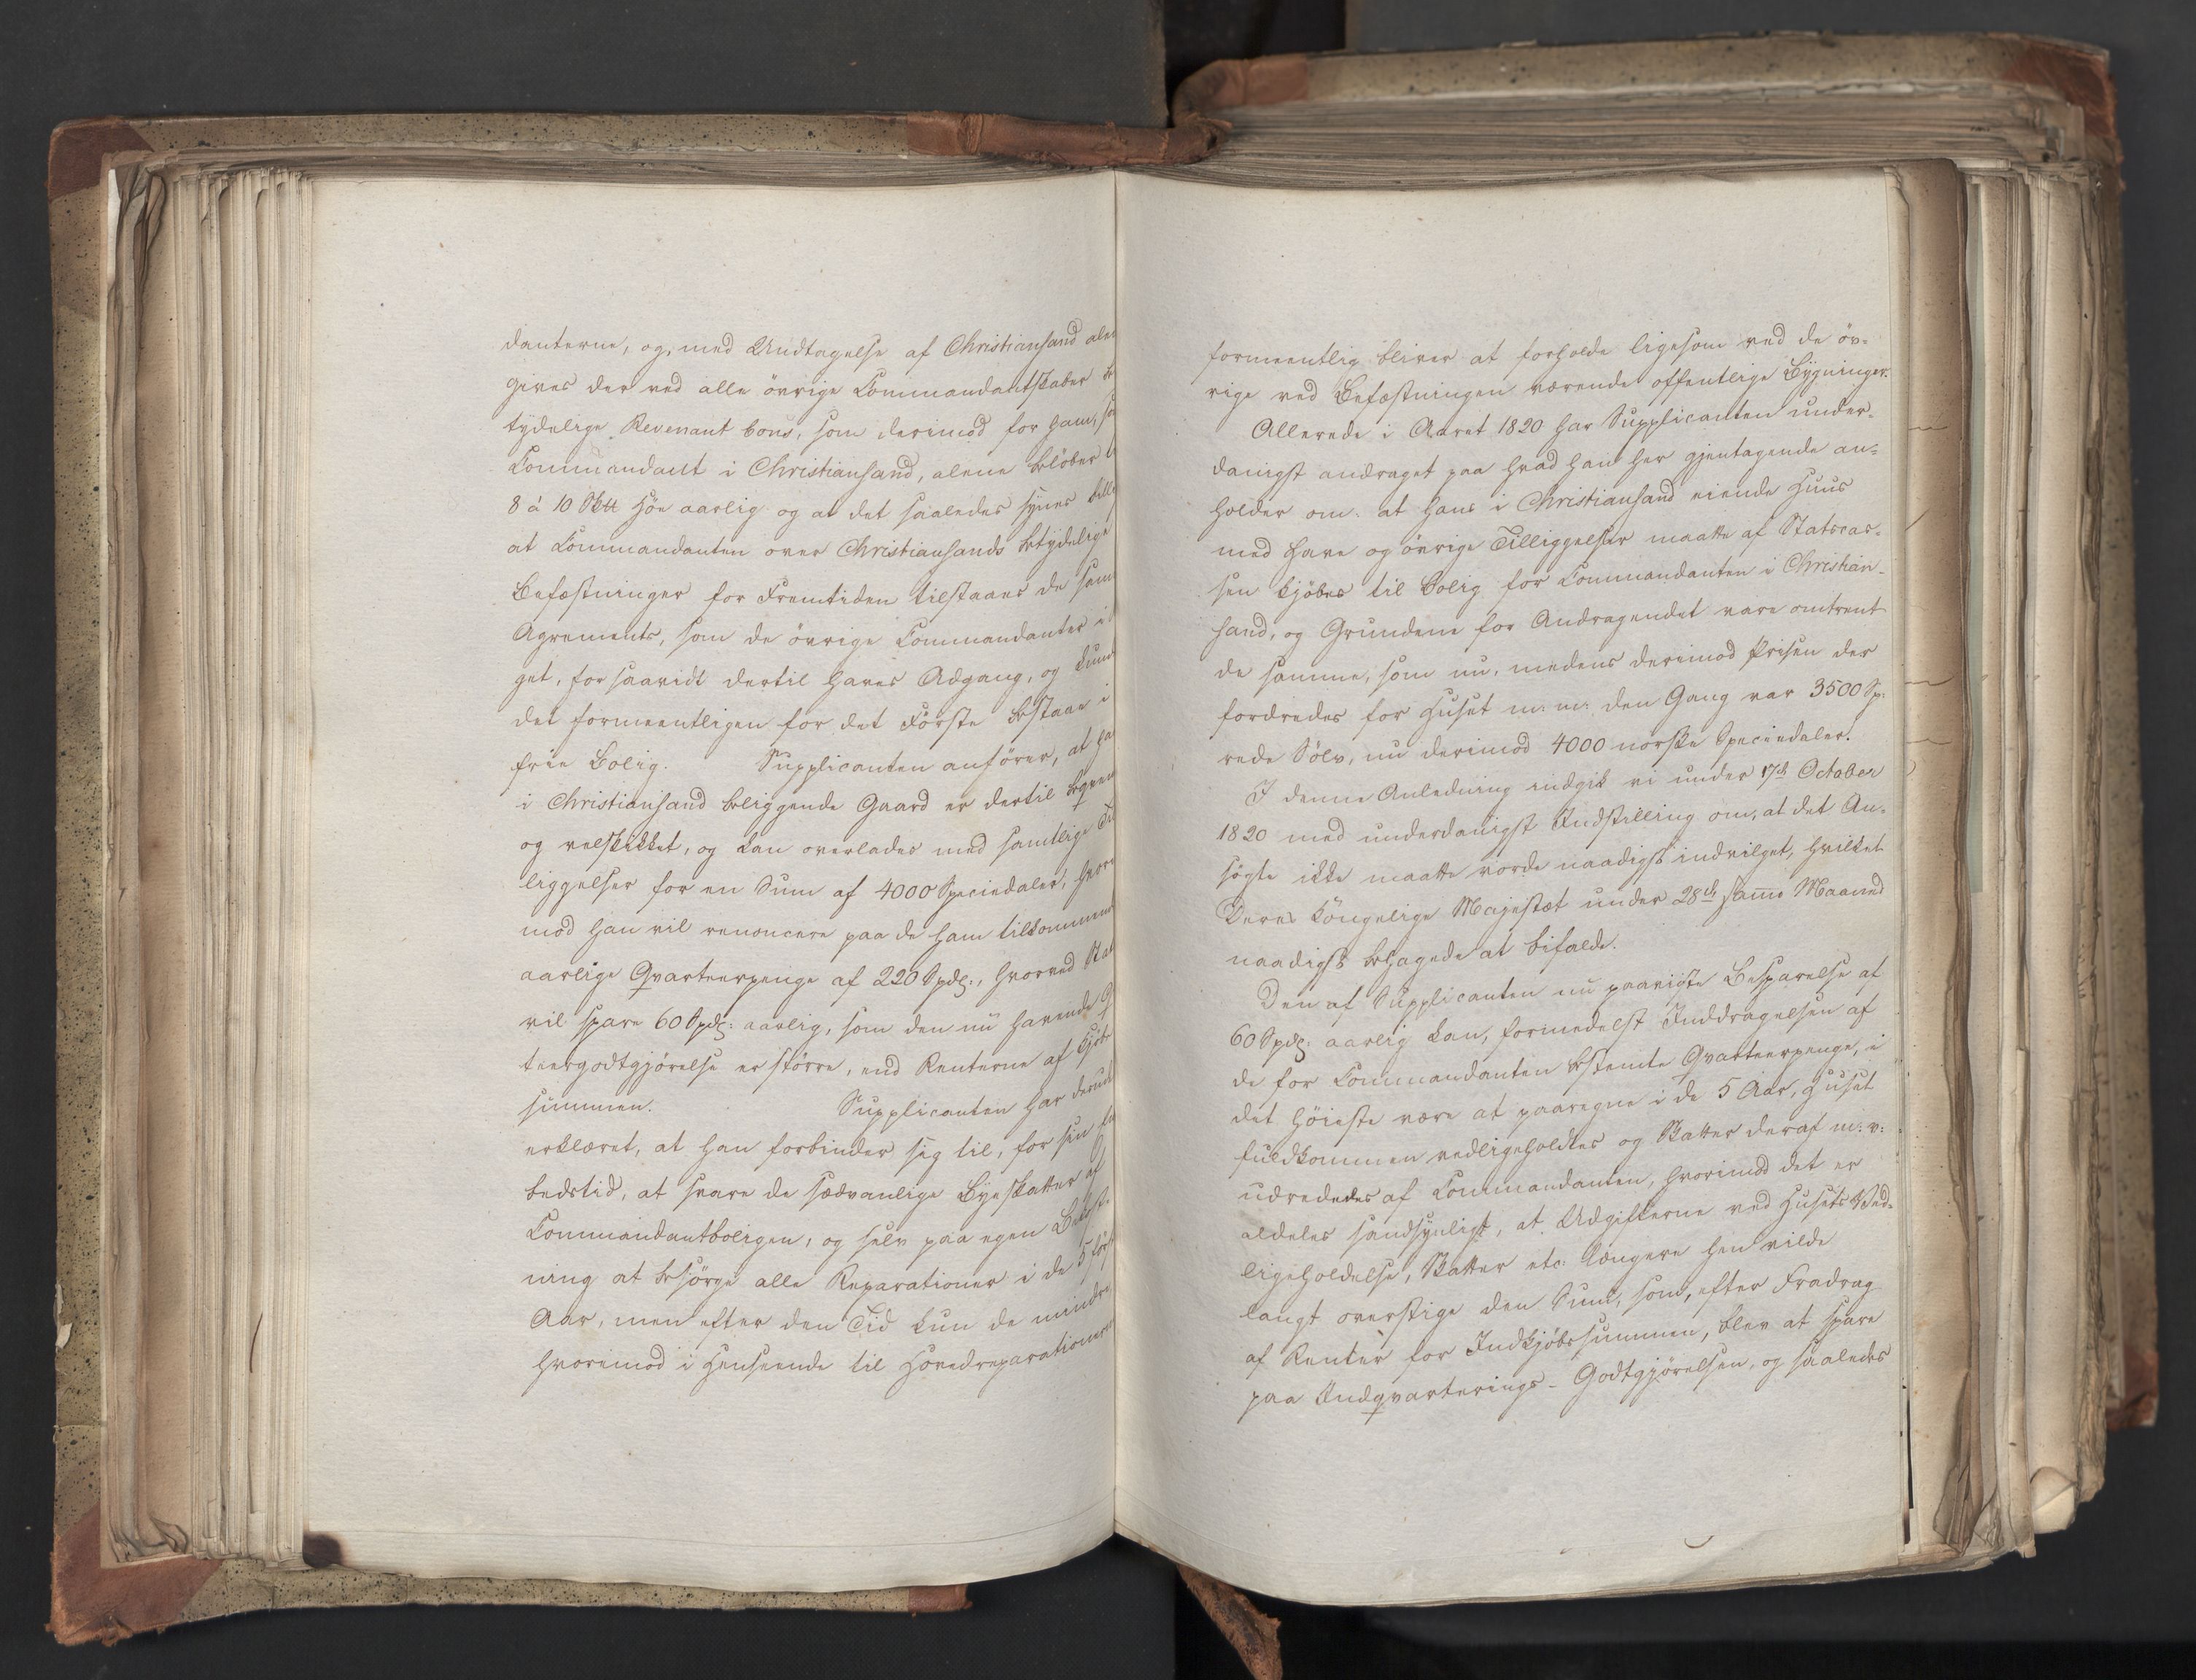 danterne, og, med Undtagelse af Christiansand alen
gives der ved alle övrige Commandantskaber be
tydelige Revenant bons, som derimod for ham, so
Commandant i Christiansand, alene belöber
8 á 10 Sktt Höe aarlig og at det saaledes synes bill
at Commandanten over Christiansands betydelige
Befæstninger for Fremtiden tilstaaes de sam
Agrements, som de övrige Commandanter i
get, forsaavidt dertil haves Adgang, og kund
det formeentligen for det Förste bestaae i
frie Bolig. Supplicanten anförer, at ha
i Christiansand beliggende Gaard er dertil beqvem
og velskikket, og kan overlades med samtlige Til
liggelser for en Sum af 4000 Speciedaler, hvor
mod han vil renoncere paa de ham tilkommen
aarlige Qvarteerpenge af 220 Spd:, hvorved Stat
vil spare 60 Spd: aarlig, som den nu havende Q
teergodtgjörelse er större, end Renterne af Kjöb
summen. Supplicanten har desud
erklæret, at han forbinder sig til, for sin Em
bedstid, at svare de sædvanlige Byeskatter af
Commandantboligen, og selv paa egen Bekost-
ning at besörge alle Reparationer i de 5 förs
Aar, men efter den Tid kun de mindre
hvorimod i Henseende til Hovedreparationer
formeentlig bliver at forholde ligesom ved de öv-
rige ved Befæstningen værende offentlige Bygninger.
Allerede i Aaret 1820 har Supplicanten under-
danigst andraget paa hvad han her gjentagende an-
holder om: at hans i Christiansand eiende Huus
med Have og övrige Tilliggelser maatte af Statscas-
sen kjöbes til Bolig for Commandanten i Christian-
sand, og Grundene for Andragendet vare omtrent
de samme, som nu, medens derimod Prisen der
fordredes for Huset m: m: den Gang var 3500 Sp:
rede Sölv, nu derimod 4000 norske Speciedaler.
I denne Anledning indgik vi under 17de October
1820 med underdanigst Indstilling om, at det An-
sögte ikke maatte vorde naadigst indvilget, hvilket
Deres Kongelige Majestæt under 28de samme Maaned
naadigst behagede at bifalde.
Den af Supplicanten nu paaviste Besparelse af
60 Spd: aarlig kan, formedelst Inddragelsen af
de for Commandanten bestemte Qvarteerpenge, i
det höieste være at paaregne i de 5 Aar, Huset
fuldkommen vedligeholdtes og Skatter deraf m: v:
udrededes af Commandanten, hvorimod det er
aldeles sandsynligt, at Udgifterne ved Husets Ved-
ligeholdelse, Skatter etc: længere hen vilde
langt overstige den Sum, som, efter Fradrag
af Renter for Indkjöbssummen, blev at spare
paa Indqvarterings-Godtgjörelsen, og saaledes